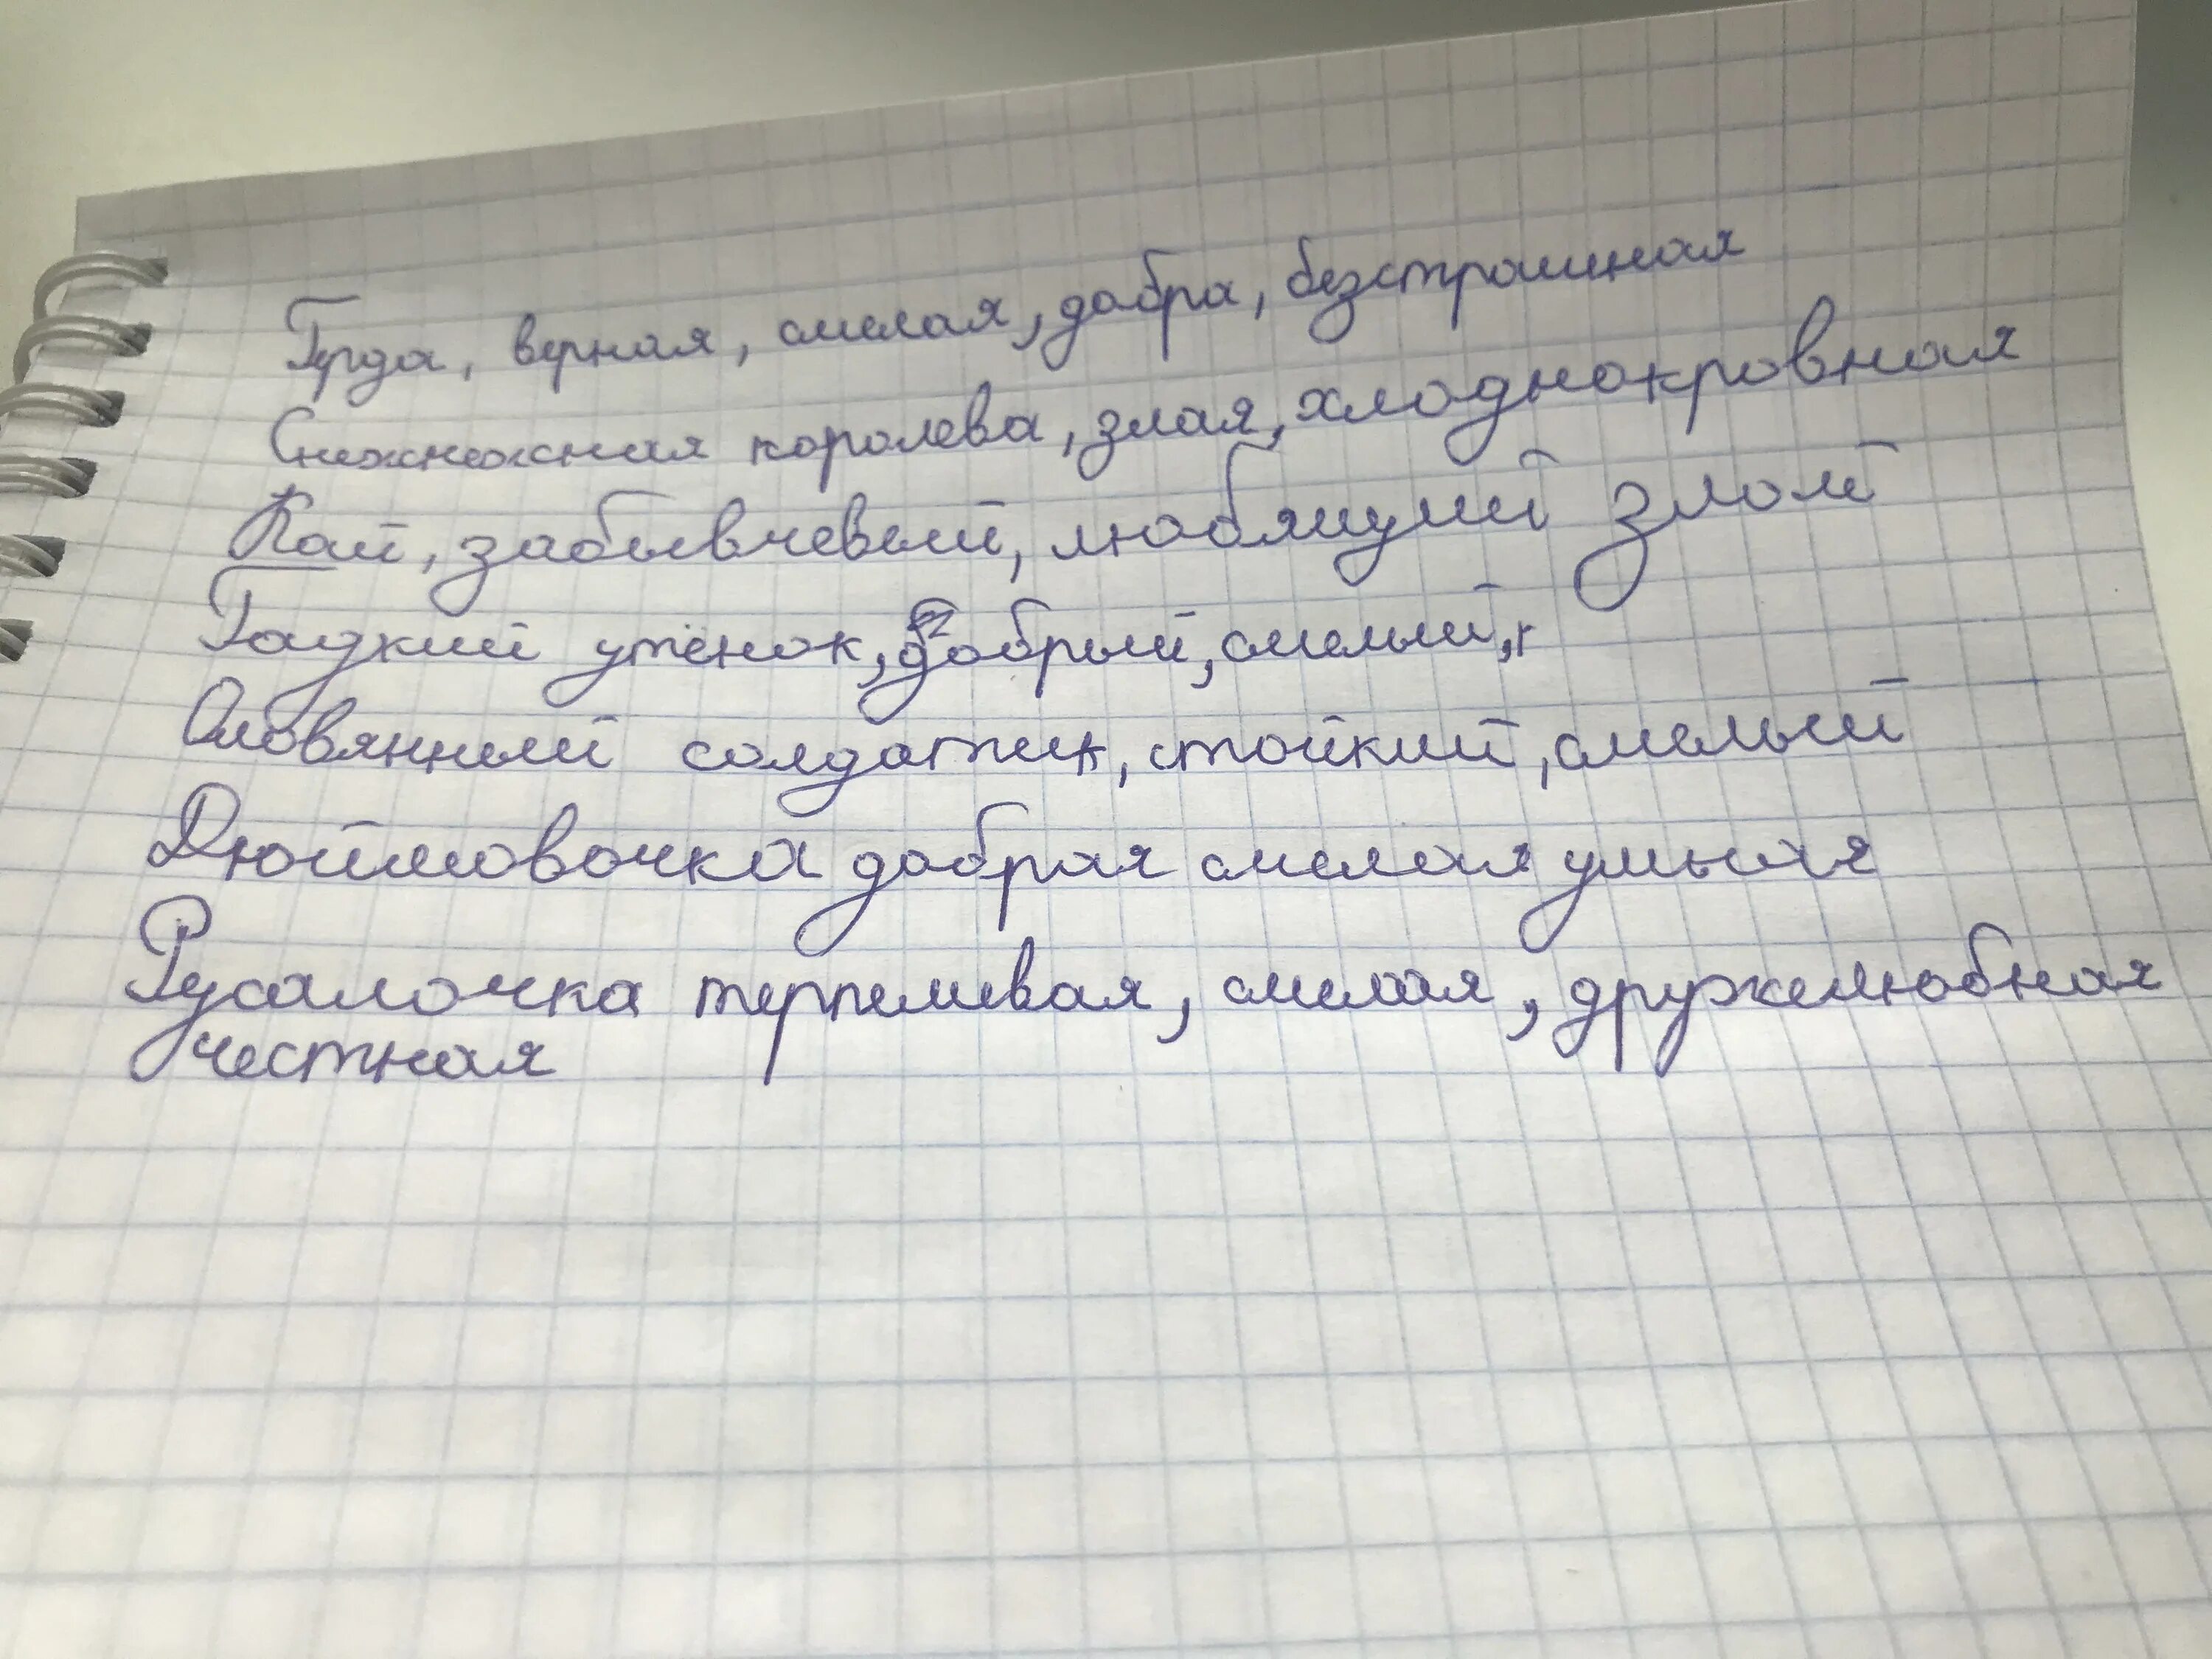 Герда, верная, смелая, добра, безстрашная
Снежнежная королева, злая, хлоднокровная
Кай, забывчевый, любящий злой
Гадкий утёнок, добрый, смелый,
Оловянный солдатик, стойкий, смелый
Дюймовочка добрая смелая умная
Русалочка терпелевая, смелая, дружелюбная
честная